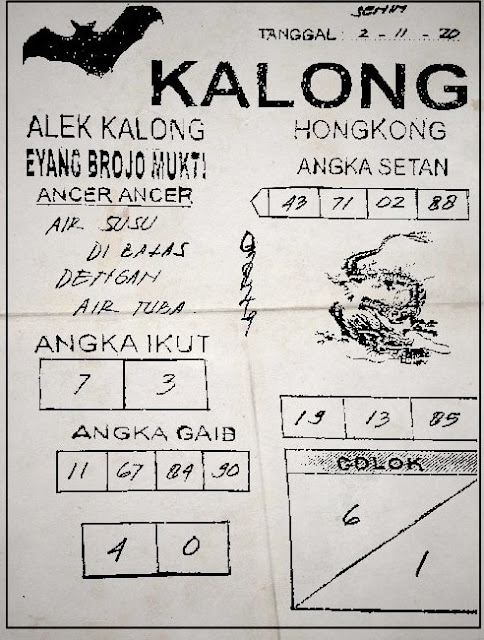 SENIN
TANGGAL : 2 - 11 - 20
KALONG
ALEK KALONG
HONGKONG
EYANG BROJO MUKTI
ANGKA SETAN
ANCER ANCER
43 71 02 88
AIR SUSU
DI BALAS
DENGAN
AIR TUBA.
ANGKA IKUT
7 3
19 13 85
ANGKA GAIB
11 67 84 90
COLOK
6
1
4 0